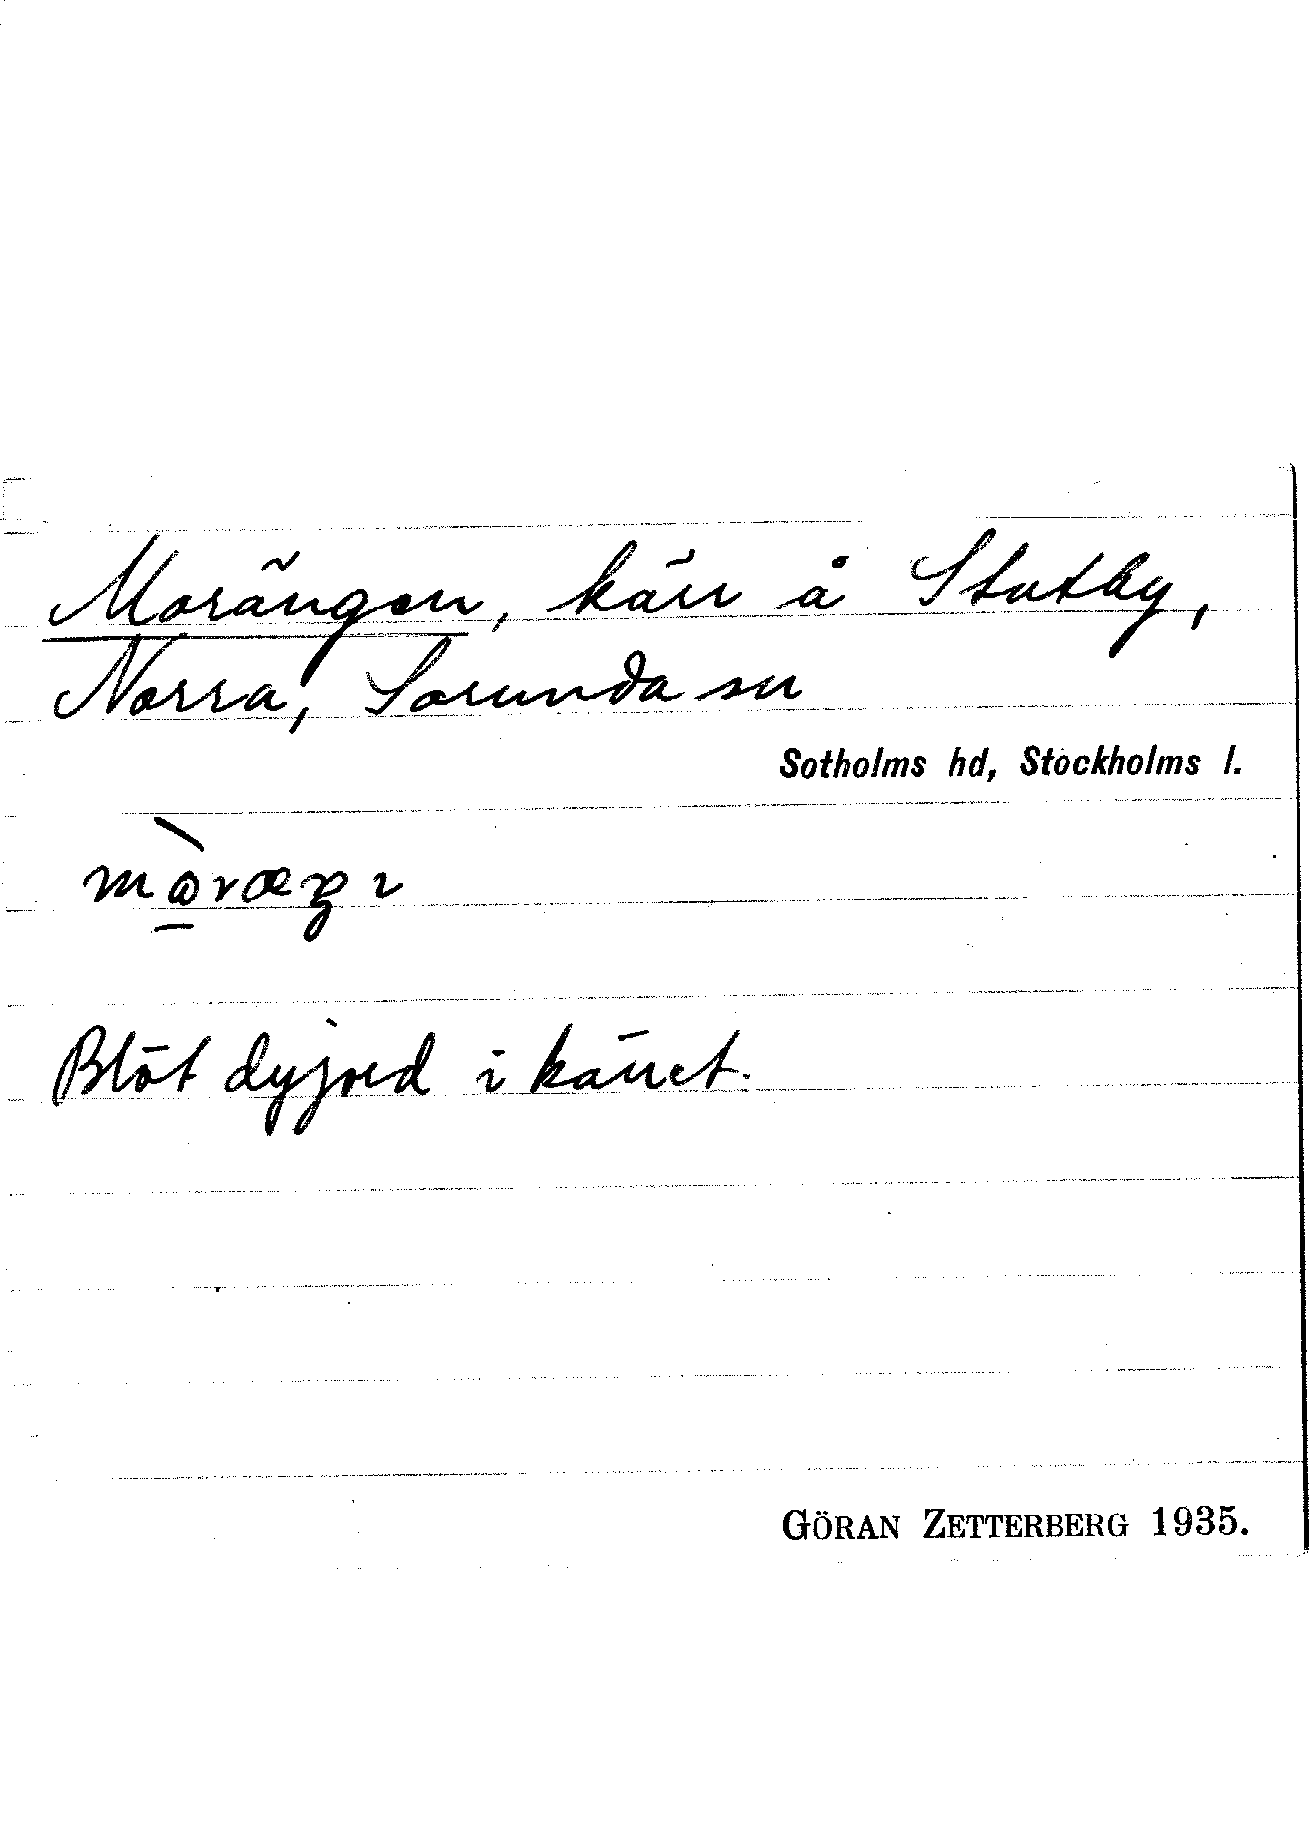 Morängen, kärr å Stutby,
Norra, Sorunda sn
Sotholms hd, Stockholms l.
Blöt dyjord i kärret.
GÖRAN ZETTERBERG 1935.